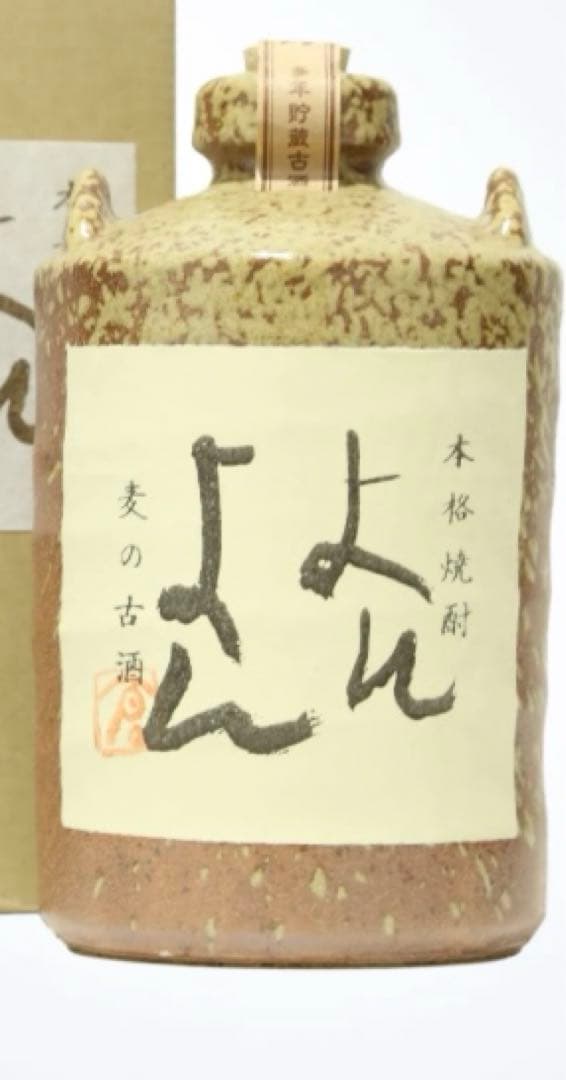 多年貯蔵古酒
本格焼酎
よん
よん
麦の古酒